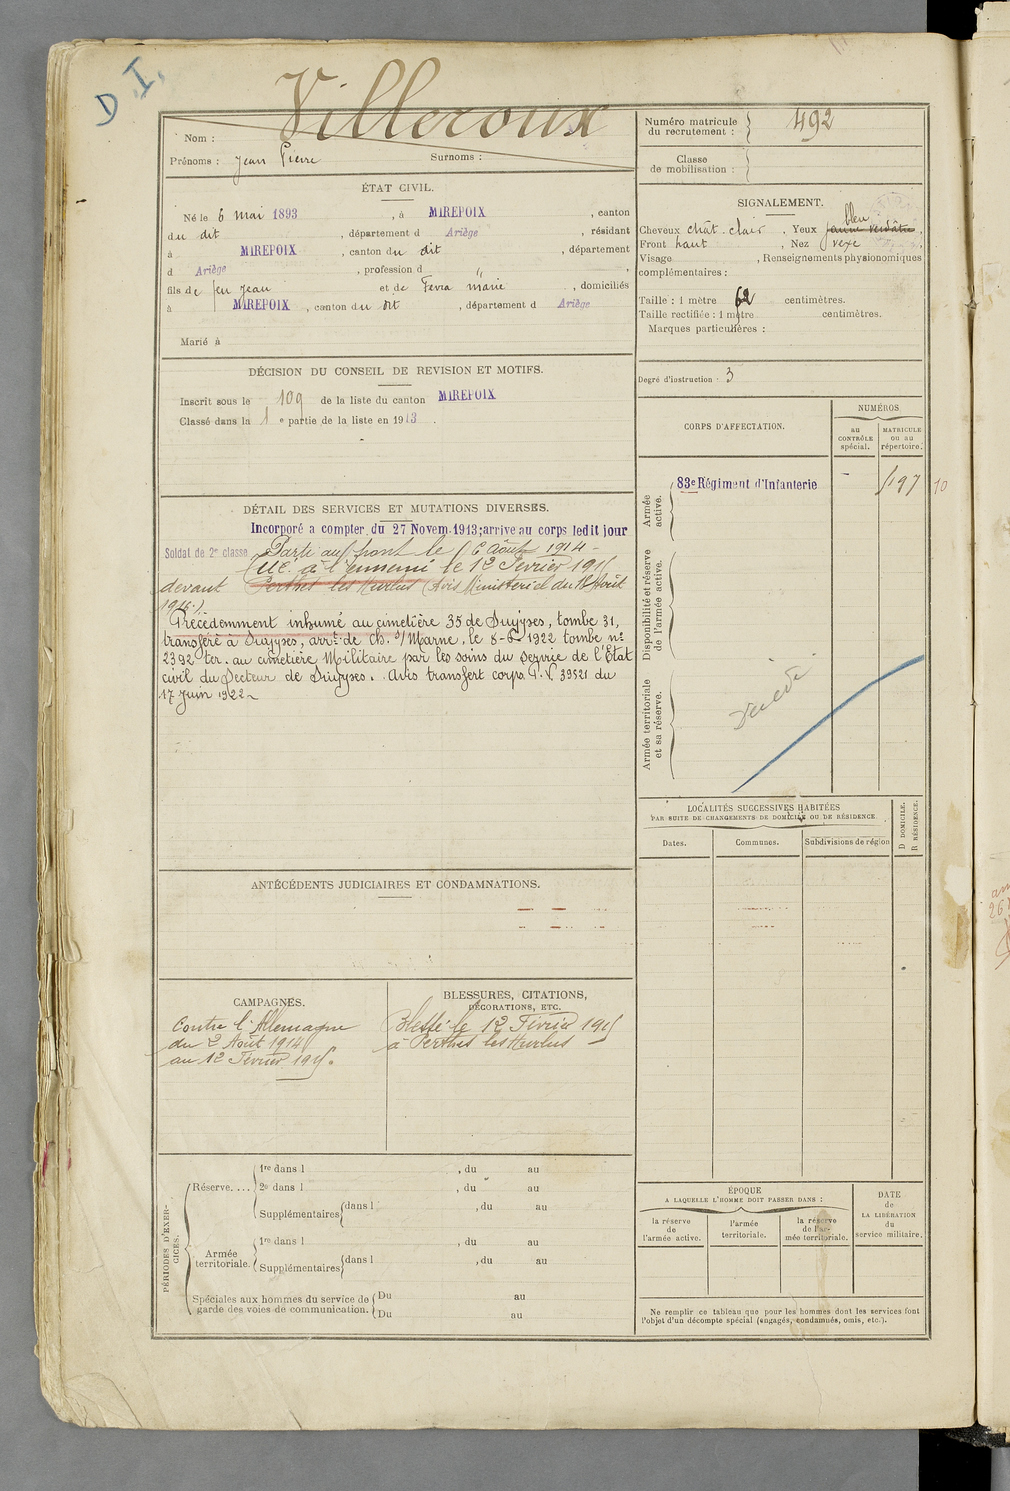 D I.
Villeroux
Nom :
Prénoms : Jean Pierre Surnoms :
ÉTAT CIVIL.
Né le 6 mai 1893, à MIREPOIX, canton
du dit, département d Ariège, résidant
à MIREPOIX, canton du dit, département
d Ariège, profession d "
fils de feu Jean et de Feria marie, domiciliés
à MIREPOIX, canton du dit, département d Ariège
Marié à
DÉCISION DU CONSEIL DE REVISION ET MOTIFS.
Inscrit sous le 109 de la liste du canton MIREPOIX
Classé dans la 1 e partie de la liste en 1913.
DÉTAIL DES SERVICES ET MUTATIONS DIVERSES.
Incorporé a compter du 27 Novem. 1913; arrivé au corps ledit jour
Soldat de 2e classe Parti au front le 6 Août 1914 -
Tué à l'ennemi le 12 Février 1915
devant Perthes les Hurlus (Avis Ministériel du 18 Août
1915.)
Précédemment inhumé au cimetière 35 de Suippes, tombe 31,
transféré à Suippes, arrt de Ch. s/Marne, le 8-6 1922 tombe no
2392 ter. au cimetière Militaire par les soins du Service de l'Etat
civil du Secteur de Suippes. Avis transfert corps P.V. 39521 du
17 Juin 1922
ANTÉCÉDENTS JUDICIAIRES ET CONDAMNATIONS.
CAMPAGNES.
Contre l'Allemagne
du 2 Août 1914
au 12 Février 1915.
BLESSURES, CITATIONS,
DÉCORATIONS, ETC.
Blessé le 12 Février 1915
à Perthes les Hurlus
PÉRIODES D'EXERCICES.
Réserve....
1re dans l , du au
2e dans l , du au
Supplémentaires dans l , du au
Armée
territoriale.
1re dans l , du au
Supplémentaires dans l , du au
Spéciales aux hommes du service de
garde des voies de communication.
Du au
Du au
Numéro matricule
du recrutement : 492
Classe
de mobilisation :
SIGNALEMENT.
bleu
Cheveux chât. clair, Yeux jaune verdâtre,
Front haut, Nez vexe
Visage , Renseignements physionomiques
complémentaires :
Taille : 1 mètre 62 centimètres.
Taille rectifiée : 1 mètre centimètres.
Marques particulières :
Degré d'instruction : 3
CORPS D'AFFECTATION.
NUMÉROS
au
CONTRÔLE
spécial.
MATRICULE
ou au
répertoire.
Armée
active.
83e Régiment d'Infanterie - 197 10
Disponibilité et réserve
de l'armée active.
Armée territoriale
et sa réserve.
LOCALITÉS SUCCESSIVES HABITÉES
PAR SUITE DE CHANGEMENTS DE DOMICILE OU DE RÉSIDENCE.
Dates. Communes. Subdivisions de région
D DOMICILE.
R RÉSIDENCE.
ÉPOQUE
A LAQUELLE L'HOMME DOIT PASSER DANS :
la réserve
de
l'armée active.
l'armée
territoriale.
la réserve
de l'ar-
mée territoriale.
DATE
de
LA LIBÉRATION
du
service militaire.
Ne remplir ce tableau que pour les hommes dont les services font
l'objet d'un décompte spécial (engagés, condamnés, omis, etc.).